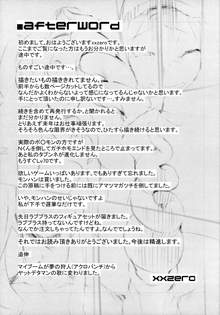 afterword
初めまして、おはようございますxxzeroです。
ここまでご覧になった方はもうお分かりかと思いますが
途中です。
ものすごい途中です…。
描きたいもの描ききれてません。
前半からも数ページカットしてるので
なんだかよくわからないよって感じになってるんじゃないかと思います。
手にとって頂いたのに申し訳ないです…すみません。
続きを含めて再発行するか…と聞かれると
まだ分かりません。
とりあえず来年はお仕事頑張ります。
そろそろ色んな限界がきそうなので、ひたすら描き続けると思います。
実際のポ○モンの方は
Nくんを倒してガチホモエンドを見たところで止まってます。
あと私のタブンネが進化しません。
もうすぐLv70です。
欲しいゲームいっぱいあります、でもありすぎて忘れます。
モンハンは買いました。
この原稿に手をつける前には既にアマツマガツチを倒してました。
いや、モンハンのせいじゃないですよ
私が下手で遅筆なだけです。
先日ラブプラスのフィギュアセットが届きました。
ラブプラス持ってないんですけどね。
なんでか注文しちゃってたんですよ…なんでしょう。
それではお読み頂きありがとうございました。今後は精進します。
追伸
マイブームが夢の狩人(アクロバンチ)から
ヤットデタマンの歌に変わりました。
xxzero